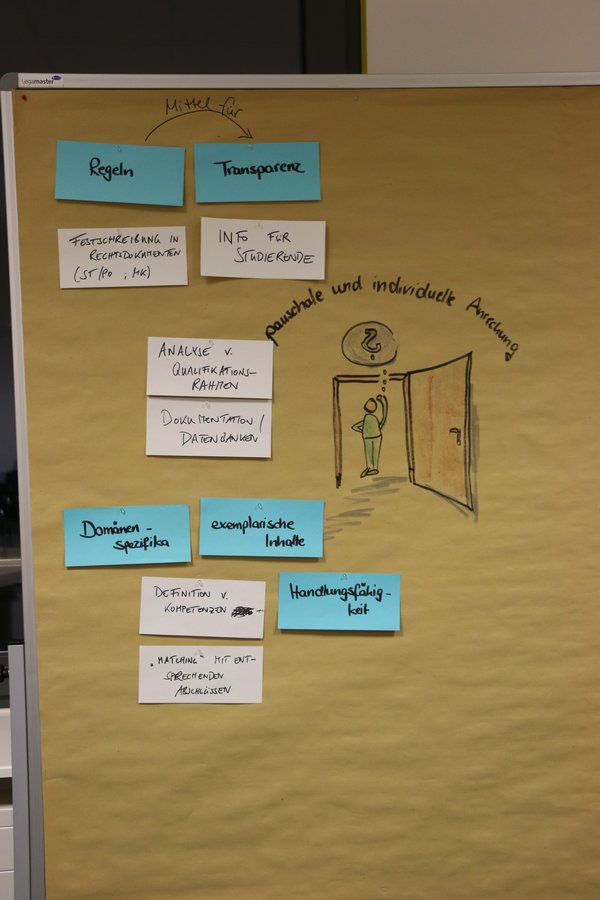 Legamaster
Mittel für
Regeln
Transparenz
FESTSCHREIBUNG IN
RECHTSDOKUMENTEN
(ST/PO ; MK)
INFO FÜR
STUDIERENDE
pauschale und individuelle Anrechnung
ANALYSE V.
QUALIFIKATIONS-
RAHMEN
DOKUMENTATION /
DATENBANKEN
?
Domänen-
spezifika
exemplarische
Inhalte
DEFINITION V.
KOMPETENZEN
Handlungsfähig-
keit
„MATCHING" MIT ENT-
SPRECHENDEN
ABSCHLÜSSEN